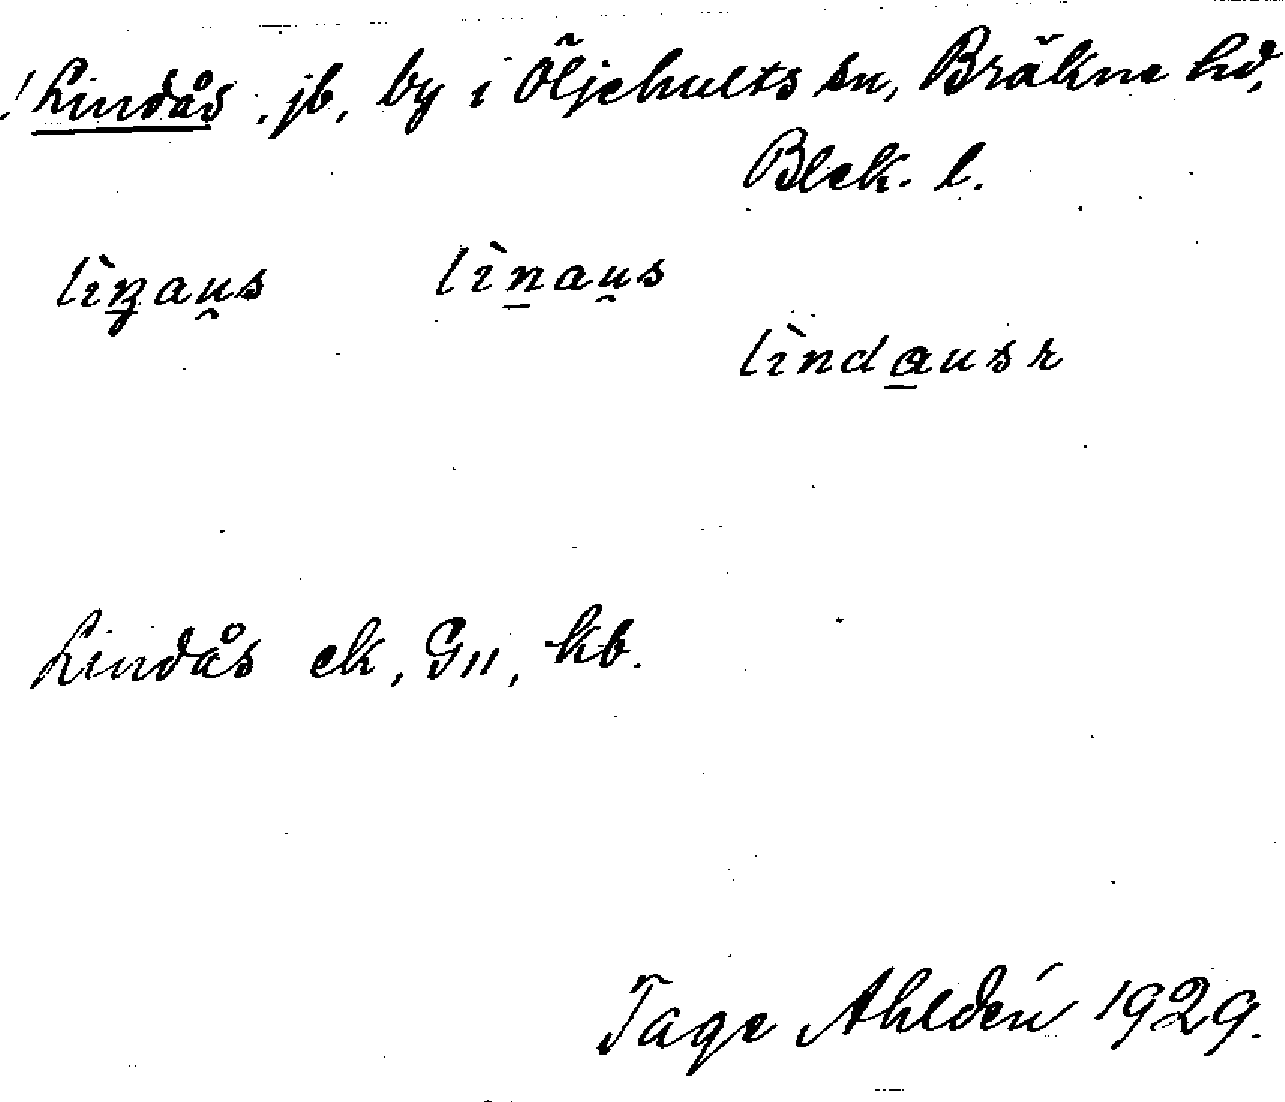 ! Lindås, jb, by i Öljehults sn, Bräkne hd,
Blek. l.
lìn̠au̯s lìn̠au̯s
lìnda̠usr
Lindås ek, G11, kb.
Tage Ahldén 1929.